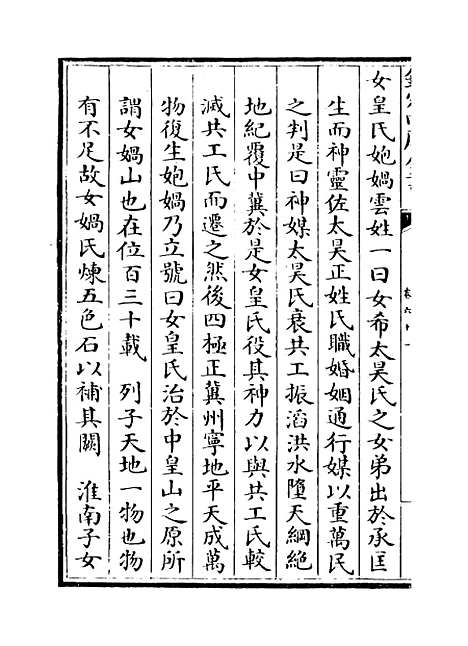 女皇氏㚿媧雲姓一曰女希太昊氏之女弟出於承匡
生而神靈佐太昊正姓氏職婚姻通行媒以重萬民
之判是曰神媒太昊氏衰共工振滔洪水墮天綱絶
地紀覆中冀於是女皇氏役其神力以與共工氏較
滅共工氏而遷之然後四極正冀州寧地平天成萬
物復生㚿媧乃立號曰女皇氏治於中皇山之原所
謂女媧山也在位百三十載　列子天地一物也物
有不足故女媧氏煉五色石以補其闕　淮南子女